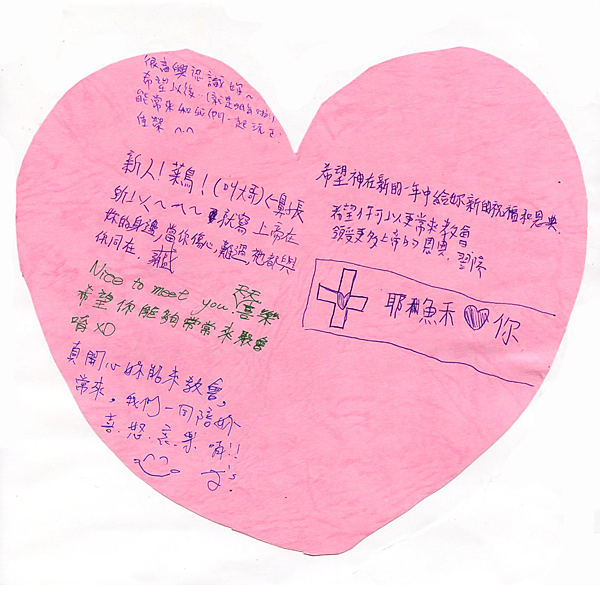 很高興認識妳～
希望以後..(就是明年啦!)
能常來和我們一起玩ㄛ!
佳縈 ^^
新人!菜鳥!(叫大哥)←鼻長
所以～～～就寫上帝在
妳的身邊,當你傷心,難過,祂都與
你同在.
Nice to meet you. 天天喜樂
希望你能夠常常來聚會
唷 XD
真開心妳能來教會,
常來,我們一同陪妳
喜.怒.哀.樂 唷!!
希望神在新的一年中給妳新的祝福和恩典.
希望你可以更常來教會
領受更多上帝的恩典.
耶穌 ♥ 你